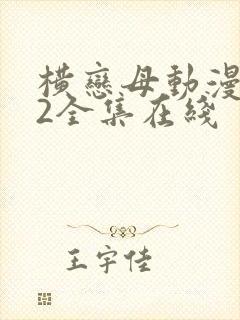 橫戀母動漫
2全集在綫
王宇佳